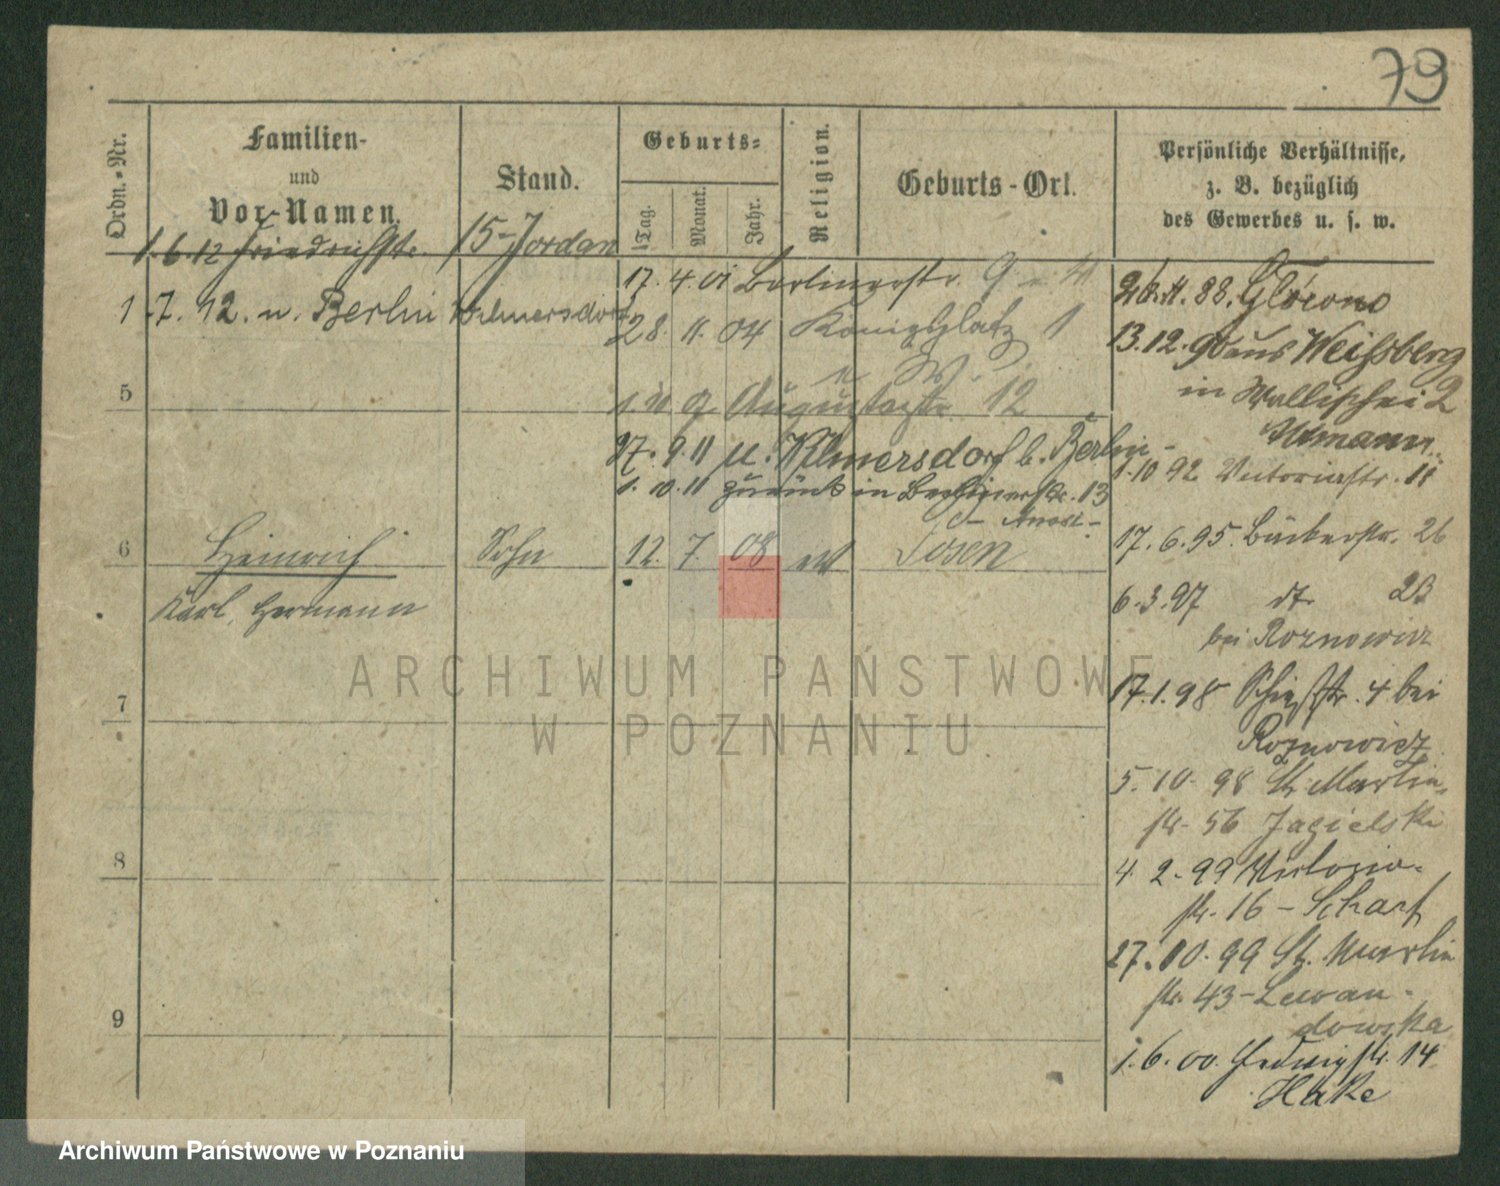 79
Ordn.-Nr.
Familien-
und
Vor-Namen.
Stand.
Geburts-
Tag.
Monat.
Jahr.
Religion.
Geburts-Ort.
Persönliche Verhältnisse,
z. B. bezüglich
des Gewerbes u. s. w.
1.6.12 Friedrichstr. 15 - Jordan
1.7.12. n. Berlin Wilmersdorf
17. 4. 01 Berlinerstr. 9
28. 11. 04 Königsplatz 1
5
Augustastr. 12
27. 9. 11 n. Wilmersdorf b. Berlin -
1. 10. 11 zurück in Berlinerstr. 13
6
Heinrich
Sohn
12. 7. 08 ev Posen
Karl, Hermann
7
8
9
88. Główno
13.12.90 aus Weissberg
in Wallischei 2
1.10 92 Victoriastr. 11
17. 6. 95. Bäckerstr. 26
6.3.97 dt. 23
bei Roznowicz
17.1.98 Schießstr. 4 bei
Roznowicz
5. 10. 98 St. Martin-
str. 56 Jagielski
4. 2. 99 Victoria-
str. 16 - Scharf
27. 10. 99 St. Martin
str. 43 - Lewan-
dowska
1. 6. 00. Hedwigstr. 14
Hake
ARCHIWUM PAŃSTWOWE
W POZNANIU
Archiwum Państwowe w Poznaniu